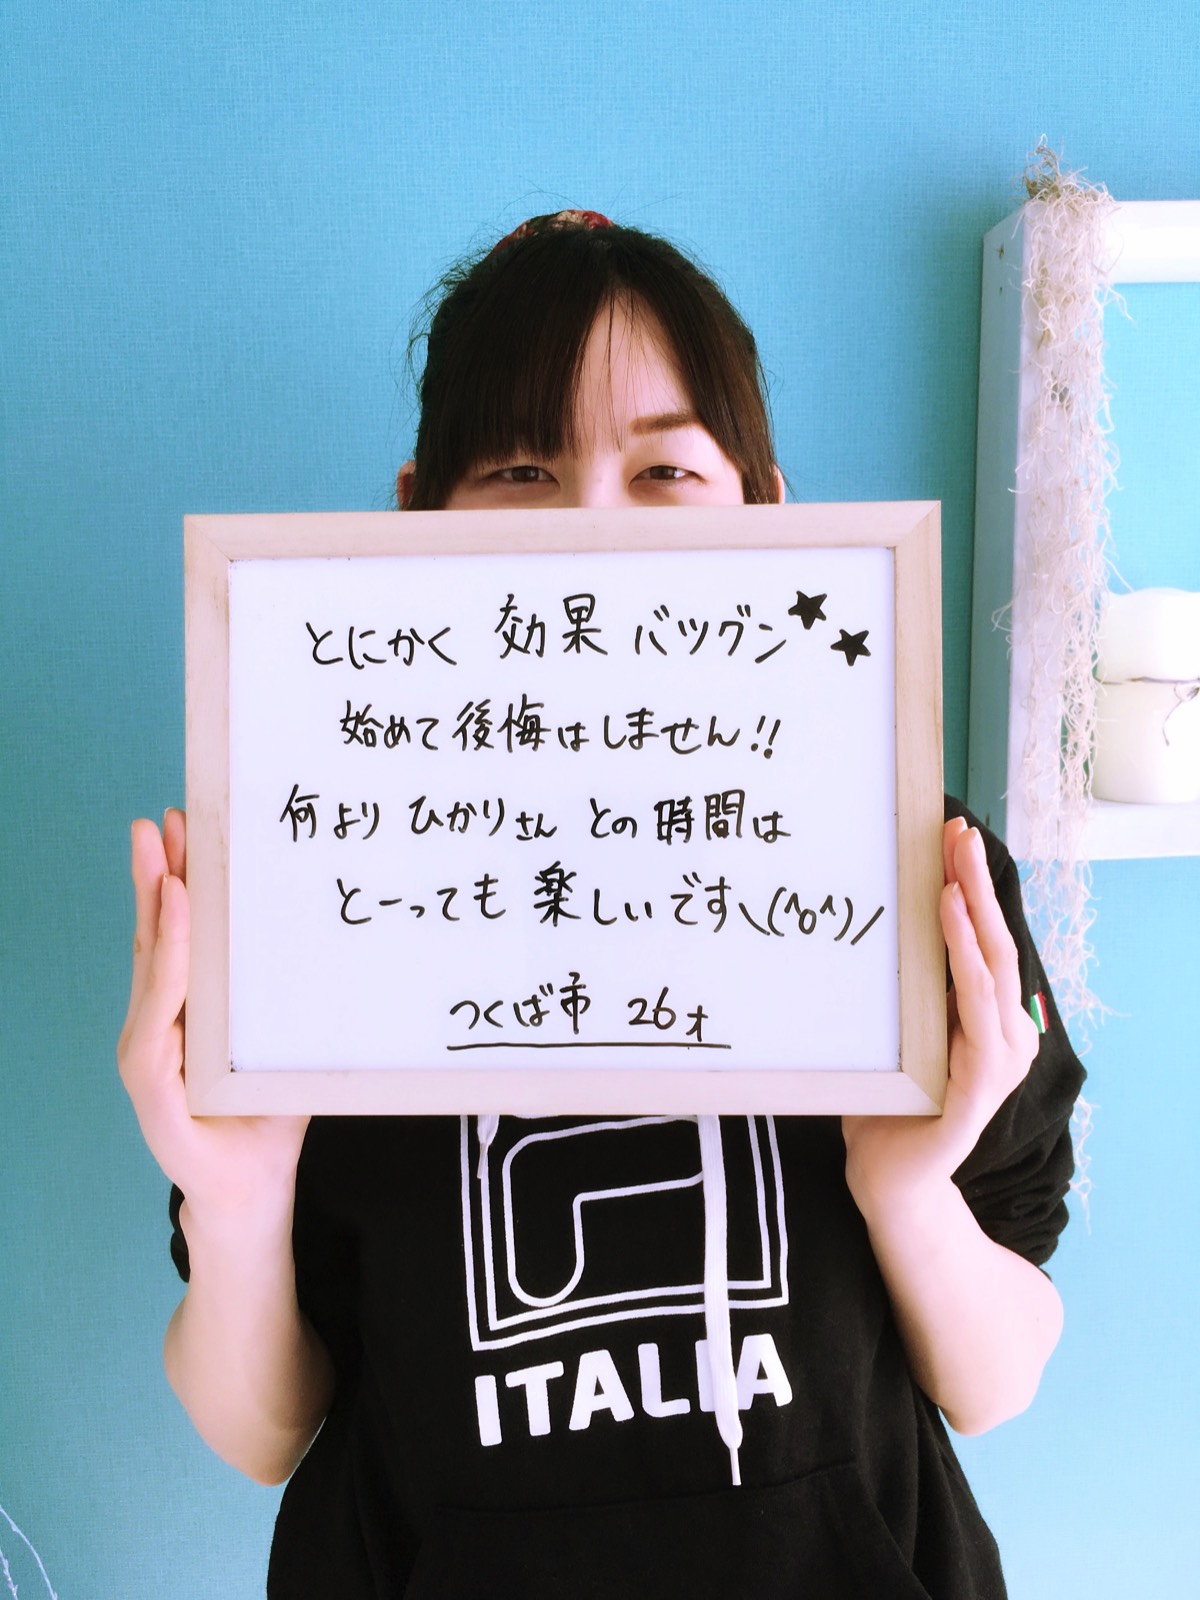 とにかく 効果 バツグン★★
始めて後悔はしません!!
何より ひかりさん との時間は
とーっても 楽しいです\(^o^)/
つくば市 26才
ITALIA